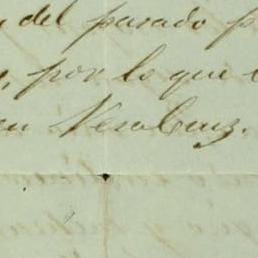 del pasado p
, por lo que
en VeraCruz.